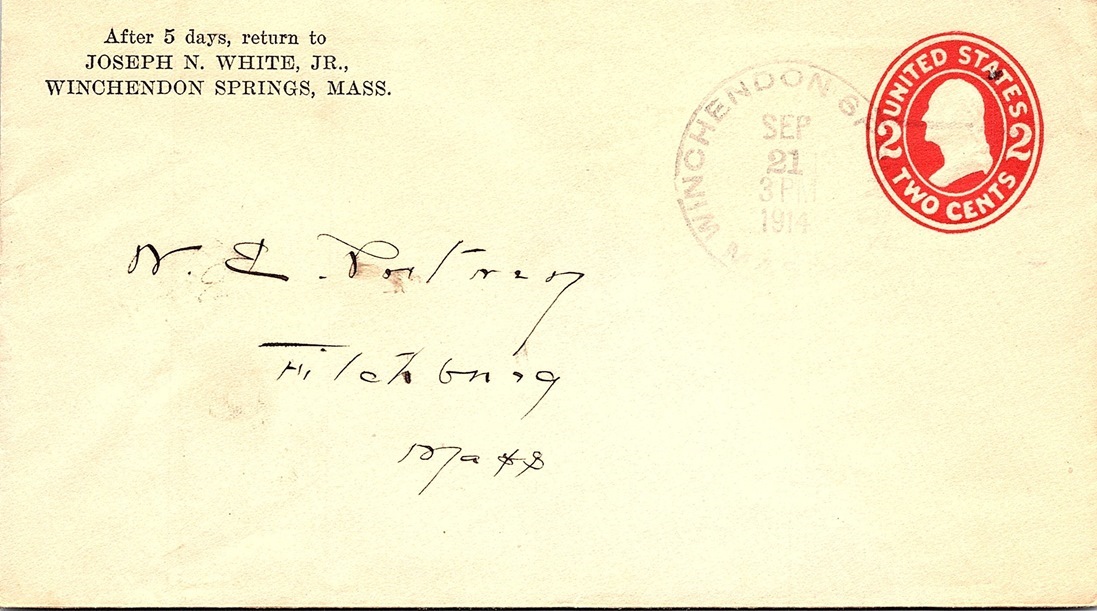 After 5 days, return to
JOSEPH N. WHITE, JR.,
WINCHENDON SPRINGS, MASS.
WINCHENDON
SEP
21
3 PM
1914
UNITED STATES
2 2
TWO CENTS
Fitchburg
Mass